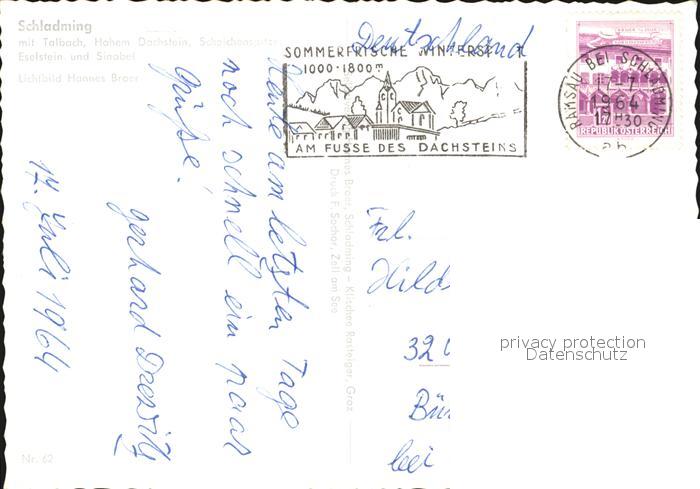 Schladming
mit Talbach, Hohem Dachstein, Scheichenspitze
Eselstein und Sinabel
Lichtbild Hannes Broer
Deutschland
SOMMERFRISCHE WINTERSP
1000-1800m
AM FUSSE DES DACHSTEINS
RAMSAU BEI SCHLADMING
17.7.
1964
17H30
ab
REPUBLIK ÖSTERREICH
Heute am letzten Tage
noch schnell ein paar
Grüße.
Gerhard
17. Juli 1964
Broer, Schladming – Klischee Rasteiger, Graz
Druck F. Sochor, Zell am See
Frl.
Hild
32
Bü
bei
privacy protection
Datenschutz
Nr. 62